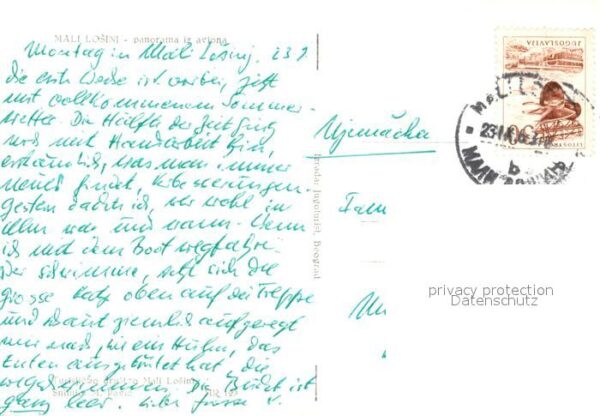 MALI LOŠINJ - panorama iz aviona
Montag in Mali Lošinj, 23.7.
die erste Woche ist vorbei, jetzt
mit vollkommenem Sommer-
wetter. Die Hälfte der Zeit ging
noch mit Handarbeit hin,
erstaunlich, was man immer
neues findet, Verbesserungen.
gestern dachte ich, wer wohl in
Ulm war und wann. Wenn
ich mit dem Boot wegfahre
oder schwimme, setzt sich die
grosse Katz oben auf die Treppe
und schaut ziemlich aufgeregt
mir nach, wie ein Huhn, das
Enten ausgebrütet hat, die
wegschwimmen. Die Bucht ist
ganz leer. Liebe Grüsse
Njemačka
Fam
Um
Jugoturist, Beograd
JUGOSLAVIJA
MALI LOŠINJ
b
privacy protection
Datenschutz